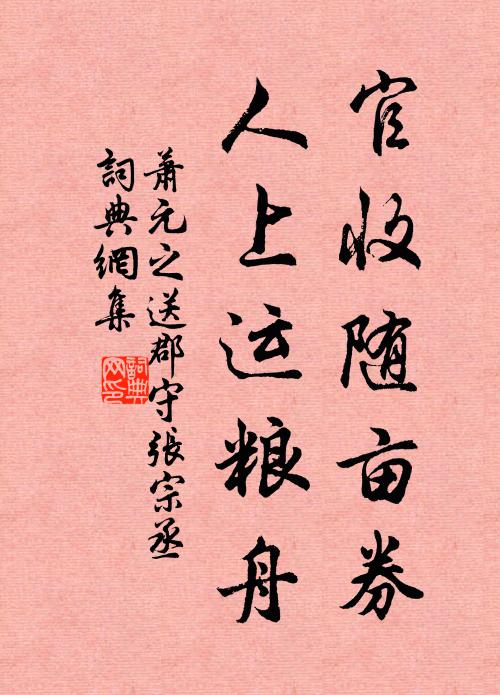 官收随亩券
人上运粮舟
萧元之送郡守張宗丞
詞典網集
詞典
网印